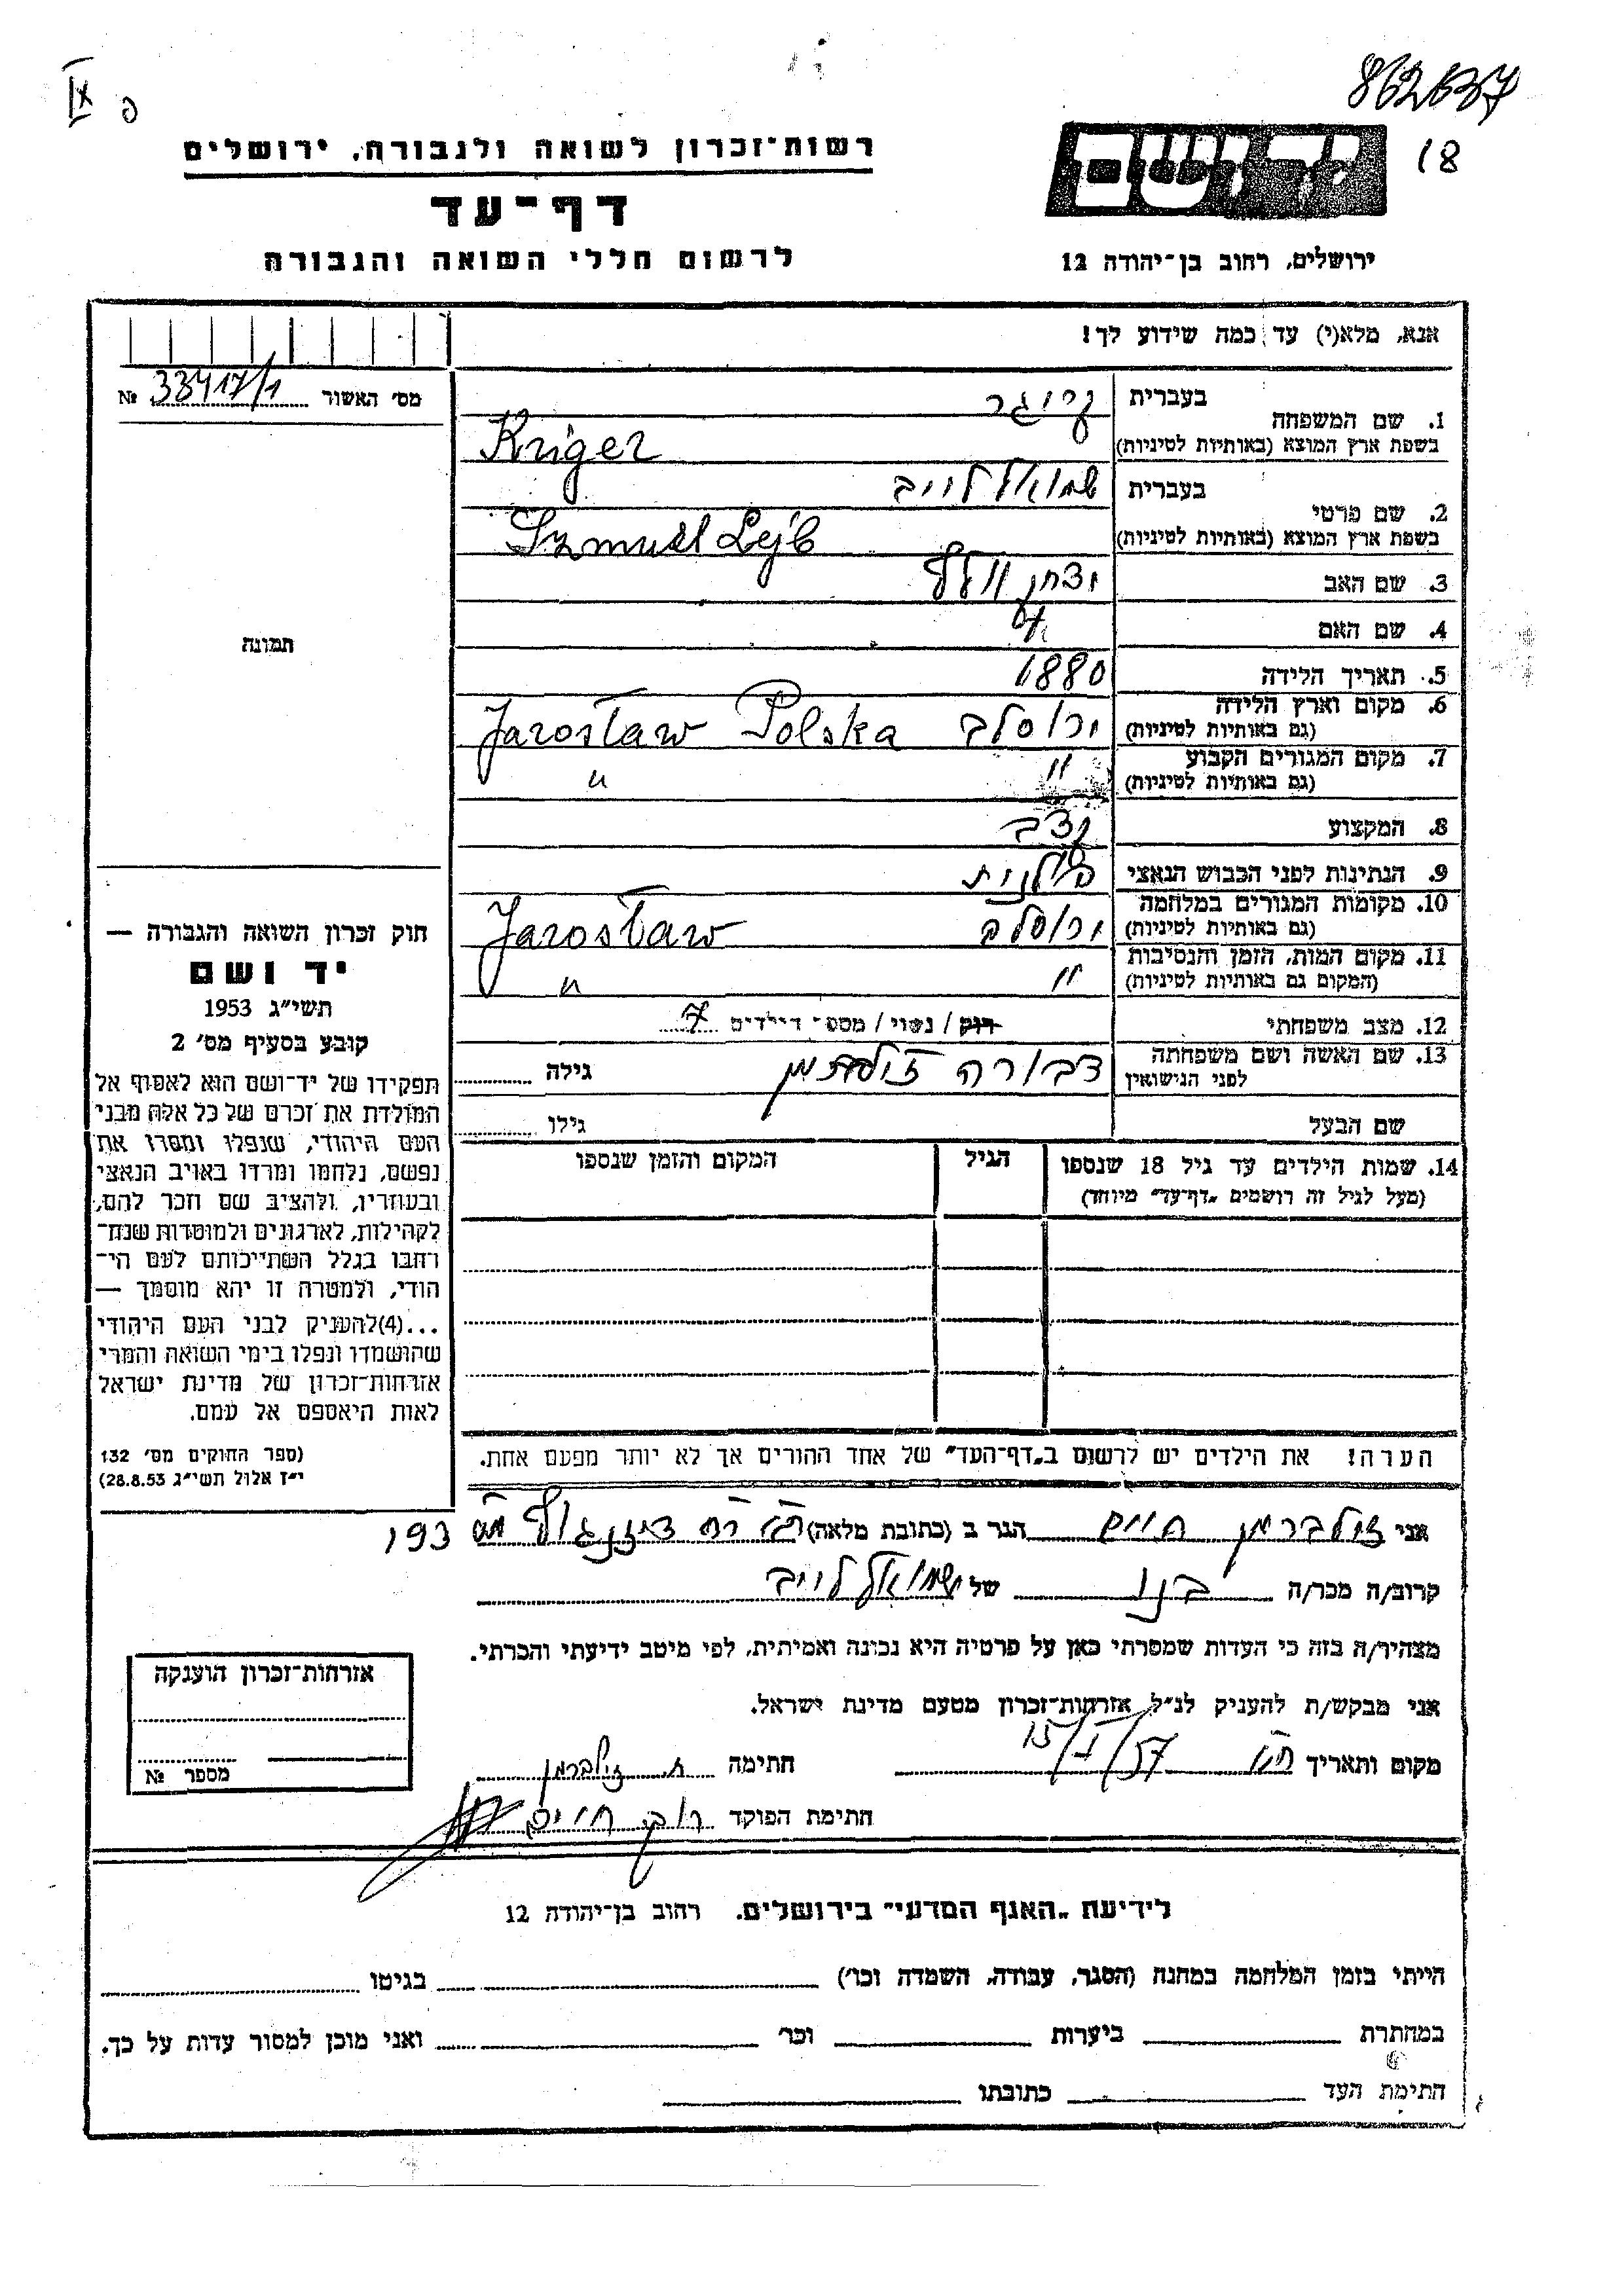 862637
18
IX
פ
יד ושם
ירושלים, רחוב בן־יהודה 12
רשות־זכרון לשואה ולגבורה, ירושלים
דף־עד
לרשום חללי השואה והגבורה
אנא, מלא(י) עד כמה שידוע לך!
מס׳ האשור 33417/1 №
תמונה
1. שם המשפחה
בעברית קריגר
בשפת ארץ המוצא (באותיות לטיניות) Kriger
2. שם פרטי
בעברית שמואל לייב
בשפת ארץ המוצא (באותיות לטיניות) Szmuel Lejb
3. שם האב יצחק וולף
4. שם האם
5. תאריך הלידה 1880
6. מקום וארץ הלידה
(גם באותיות לטיניות) ירוסלב Jarosław Polska
7. מקום המגורים הקבוע
(גם באותיות לטיניות) " "
8. המקצוע קצב
9. הנתינות לפני הכבוש הנאצי פולנית
10. מקומות המגורים במלחמה
(גם באותיות לטיניות) ירוסלב Jarosław
11. מקום המות, הזמן והנסיבות
(המקום גם באותיות לטיניות) " "
12. מצב משפחתי רוק / נשוי / מספר הילדים 7
13. שם האשה ושם משפחתה
לפני הנישואין דבורה זילברמן גילה
שם הבעל גילו
14. שמות הילדים עד גיל 18 שנספו
(מעל לגיל זה רושמים „דף־עד״ מיוחד)
הגיל
המקום והזמן שנספו
הערה! את הילדים יש לרשום ב„דף־העד״ של אחד ההורים אך לא יותר מפעם אחת.
חוק זכרון השואה והגבורה —
יד ושם
תשי״ג 1953
קובע בסעיף מס׳ 2
תפקידו של יד־ושם הוא לאסוף אל
המולדת את זכרם של כל אלה מבני
העם היהודי, שנפלו ומסרו את
נפשם, נלחמו ומרדו באויב הנאצי
ובעוזריו, ולהציב שם וזכר להם,
לקהילות, לארגונים ולמוסדות שנח־
רבו בגלל השתייכותם לעם הי־
הודי, ולמטרה זו יהא מוסמך —
...(4)להעניק לבני העם היהודי
שהושמדו ונפלו בימי השואה והמרי
אזרחות־זכרון של מדינת ישראל
לאות היאספם אל עמם.
(ספר החוקים מס׳ 132
י״ז אלול תשי״ג 28.8.53)
אני זילברמן חיים הגר ב (כתובת מלאה) רח דיזנגוף 193
קרוב/ה מכר/ה בנו של שמואל לייב
מצהיר/ה בזה כי העדות שמסרתי כאן על פרטיה היא נכונה ואמיתית, לפי מיטב ידיעתי והכרתי.
אני מבקש/ת להעניק לנ״ל אזרחות־זכרון מטעם מדינת ישראל.
מקום ותאריך 15/I/57 חתימה ח. זילברמן
חתימת הפוקד רוק חיים
אזרחות־זכרון הוענקה
מספר №
לידיעת „האגף המדעי״ בירושלים. רחוב בן־יהודה 12
הייתי בזמן המלחמה במחנה (הסגר, עבודה, השמדה וכו׳) בגיטו
במחתרת ביערות וכו׳ ואני מוכן למסור עדות על כך.
חתימת העד כתובתו